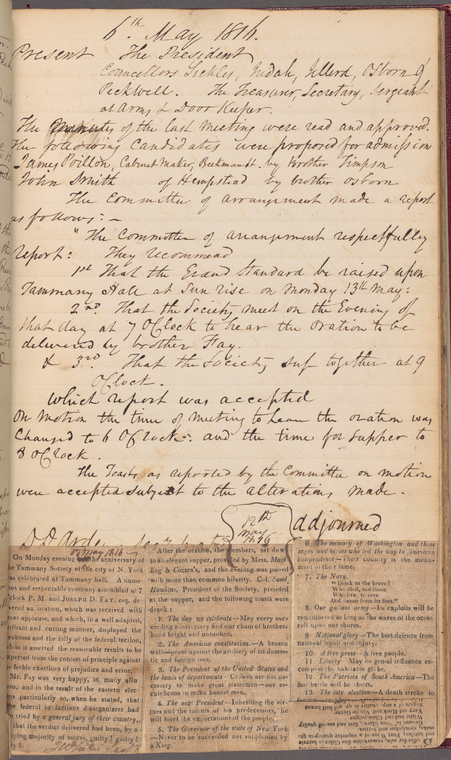 6th May 1816.
Present The President
Councellors Sickles, Judah, Jellerd, Osborn &
Peckwell. The Treasurer, Secretary, Sergeant
at Arms & Door Keeper.
The Minutes of the last Meeting were read and approved.
The following Candidates were proposed for admission
James Poillon, Cabinet Maker, Beekman st. by brother Timpson
John Smith of Hempstead by brother Osborn
The Committee of arrangement made a report
as follows: —
"The Committee of arrangement respectfully
report: They recommend
1st That the Grand Standard be raised upon
Tammany Hall at Sun rise on Monday 13th May:
2nd. That the Society meet on the Evening of
that day at 7 OClock to hear the Oration to be
delivered by brother Fay.
& 3rd. That the Society sup together at 9
OClock.
Which report was accepted
On Motion the time of Meeting to hear the oration was
Changed to 6 OClock: and the time for supper to
8 OClock.
The Toasts as reported by the Committee on motion
were accepted subject to the alterations made.
adjourned
12th
May
1816
May 1816
On Monday evening anniversary of
the Tammany Society of the city of N. York
was celebrated at Tammany hall. A numerous
and respectable company assembled at 7
o'clock P. M. and Joseph D. Fay, esq. delivered
an oration, which was received with
great applause, and which, in a well adapted,
brilliant and cutting manner, displayed the
weakness and the folly of the federal faction,
while it asserted the reasonable results to be
expected from the contest of principle against
the feeble exertions of prejudice and error.
Mr. Fay was very happy, in many allusions,
and in the result of the eastern elections
particularly so, when he stated, that
the federal or factious disorganizers had
been tried by a general jury of their country,
that the verdict delivered had been, by a
majority of voices, guilty! guilty!
After the oration, the members, sat down
to an elegant supper, provided by Mess.
& Cozzen's, and the evening was passed
with more than common hilarity. Col.
Hawkins, President of the Society, presided
at the supper, and the following toasts were
drank:
1. The day we celebrate—May every succeeding
anniversary find our chain of brotherhood
bright and unbroken.
2. The American constitution.—A brazen
wall—proof against the artillery of its domestic
and foreign foes.
3. The President of the United States and
the heads of departments—Colours are not necessary
to make great statesmen—nor escutcheons
to make honest men.
4. The next President—Inheriting the virtues
and the talents of his predecessors, he
will meet the expectations of the people.
5. The Governor of the state of New York
—Never to be succeeded nor supplanted by
a King.
6. The memory of Washington and those
sages and heroes who led the way to American
independence—their country is the monument
to their fame.
7. The Navy.
"Drink to the brave!
Who died, and those
Who live, to save
Our ocean from its foes."
8. Our gallant army—Its exploits will be
remembered as long as the waves of the ocean
wash upon our shores.
9. National glory—The best defence from
national insult and injury.
10. A free press—A free people.
11. Liberty—May its genial influence encompass
the habitable globe.
12. The Patriots of South America—The
last battle be theirs.
13. The late election—A death stroke to